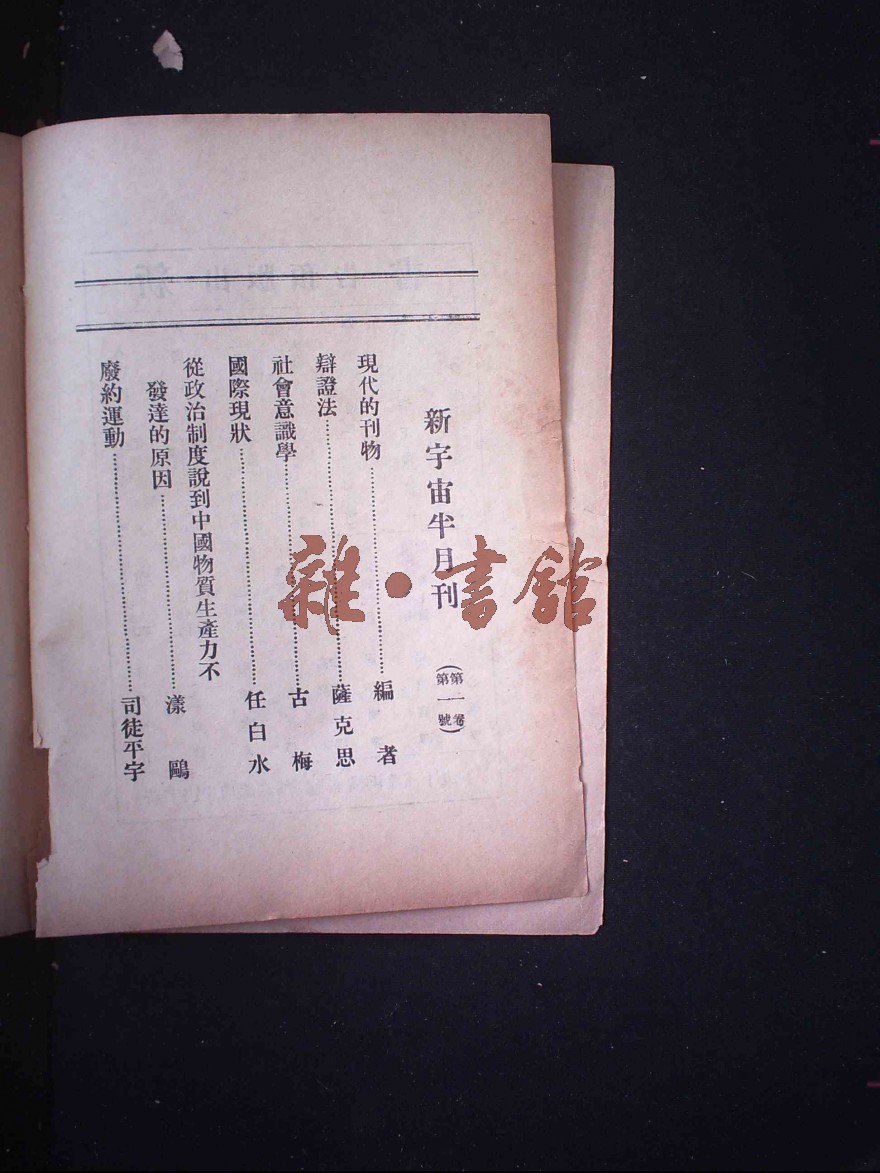 新宇宙半月刊
（第一卷
第一號）
現代的刊物…………編者
辯證法…………薩克思
社會意識學…………古梅
國際現狀…………任白水
從政治制度說到中國物質生產力不
發達的原因…………漾鷗
廢約運動…………司徒平宇
雜·書館